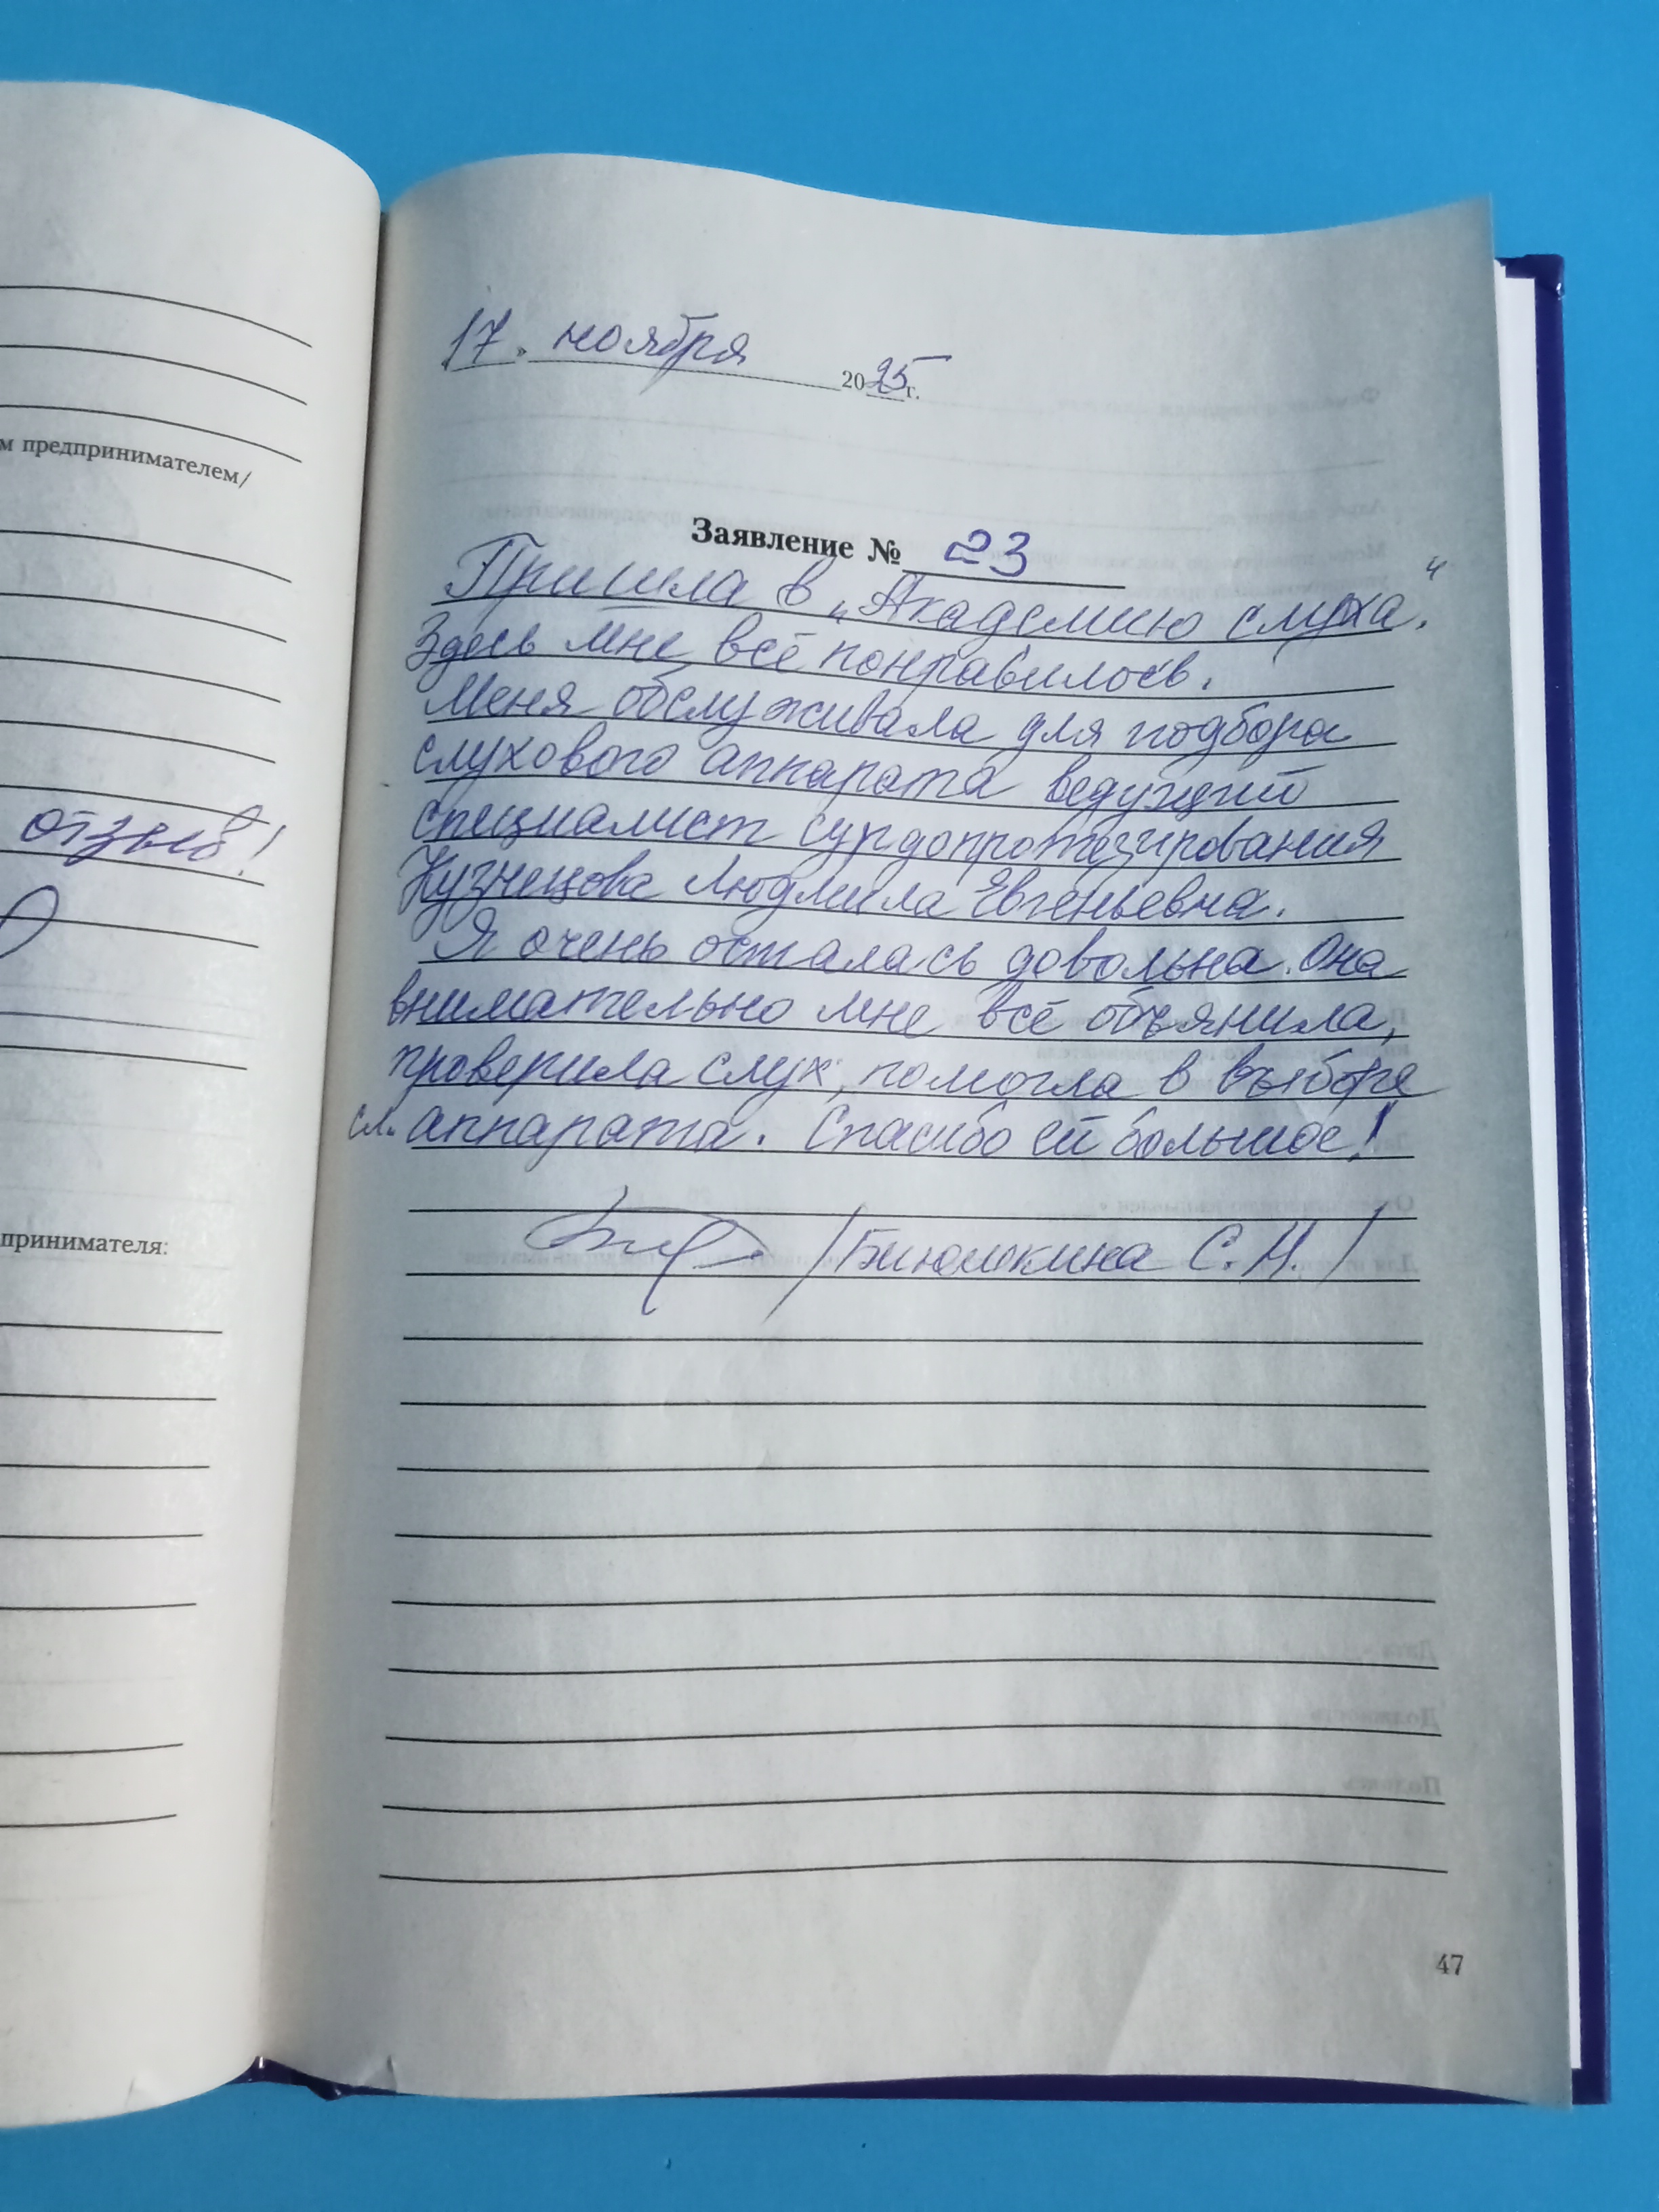 м предпринимателем/
отзыв!
принимателя:
17 » ноября 2025 г.
Заявление № 23
Пришла в „Академию слуха."
Здесь мне всё понравилось.
Меня обслуживала для подбора
слухового аппарата ведущий
специалист сурдопротезирования
Кузнецова Людмила Евгеньевна.
Я очень осталась довольна. Она
внимательно мне всё объянила,
проверила слух, помогла в выборе
сл. аппарата. Спасибо ей большое!
С. Н. /
47